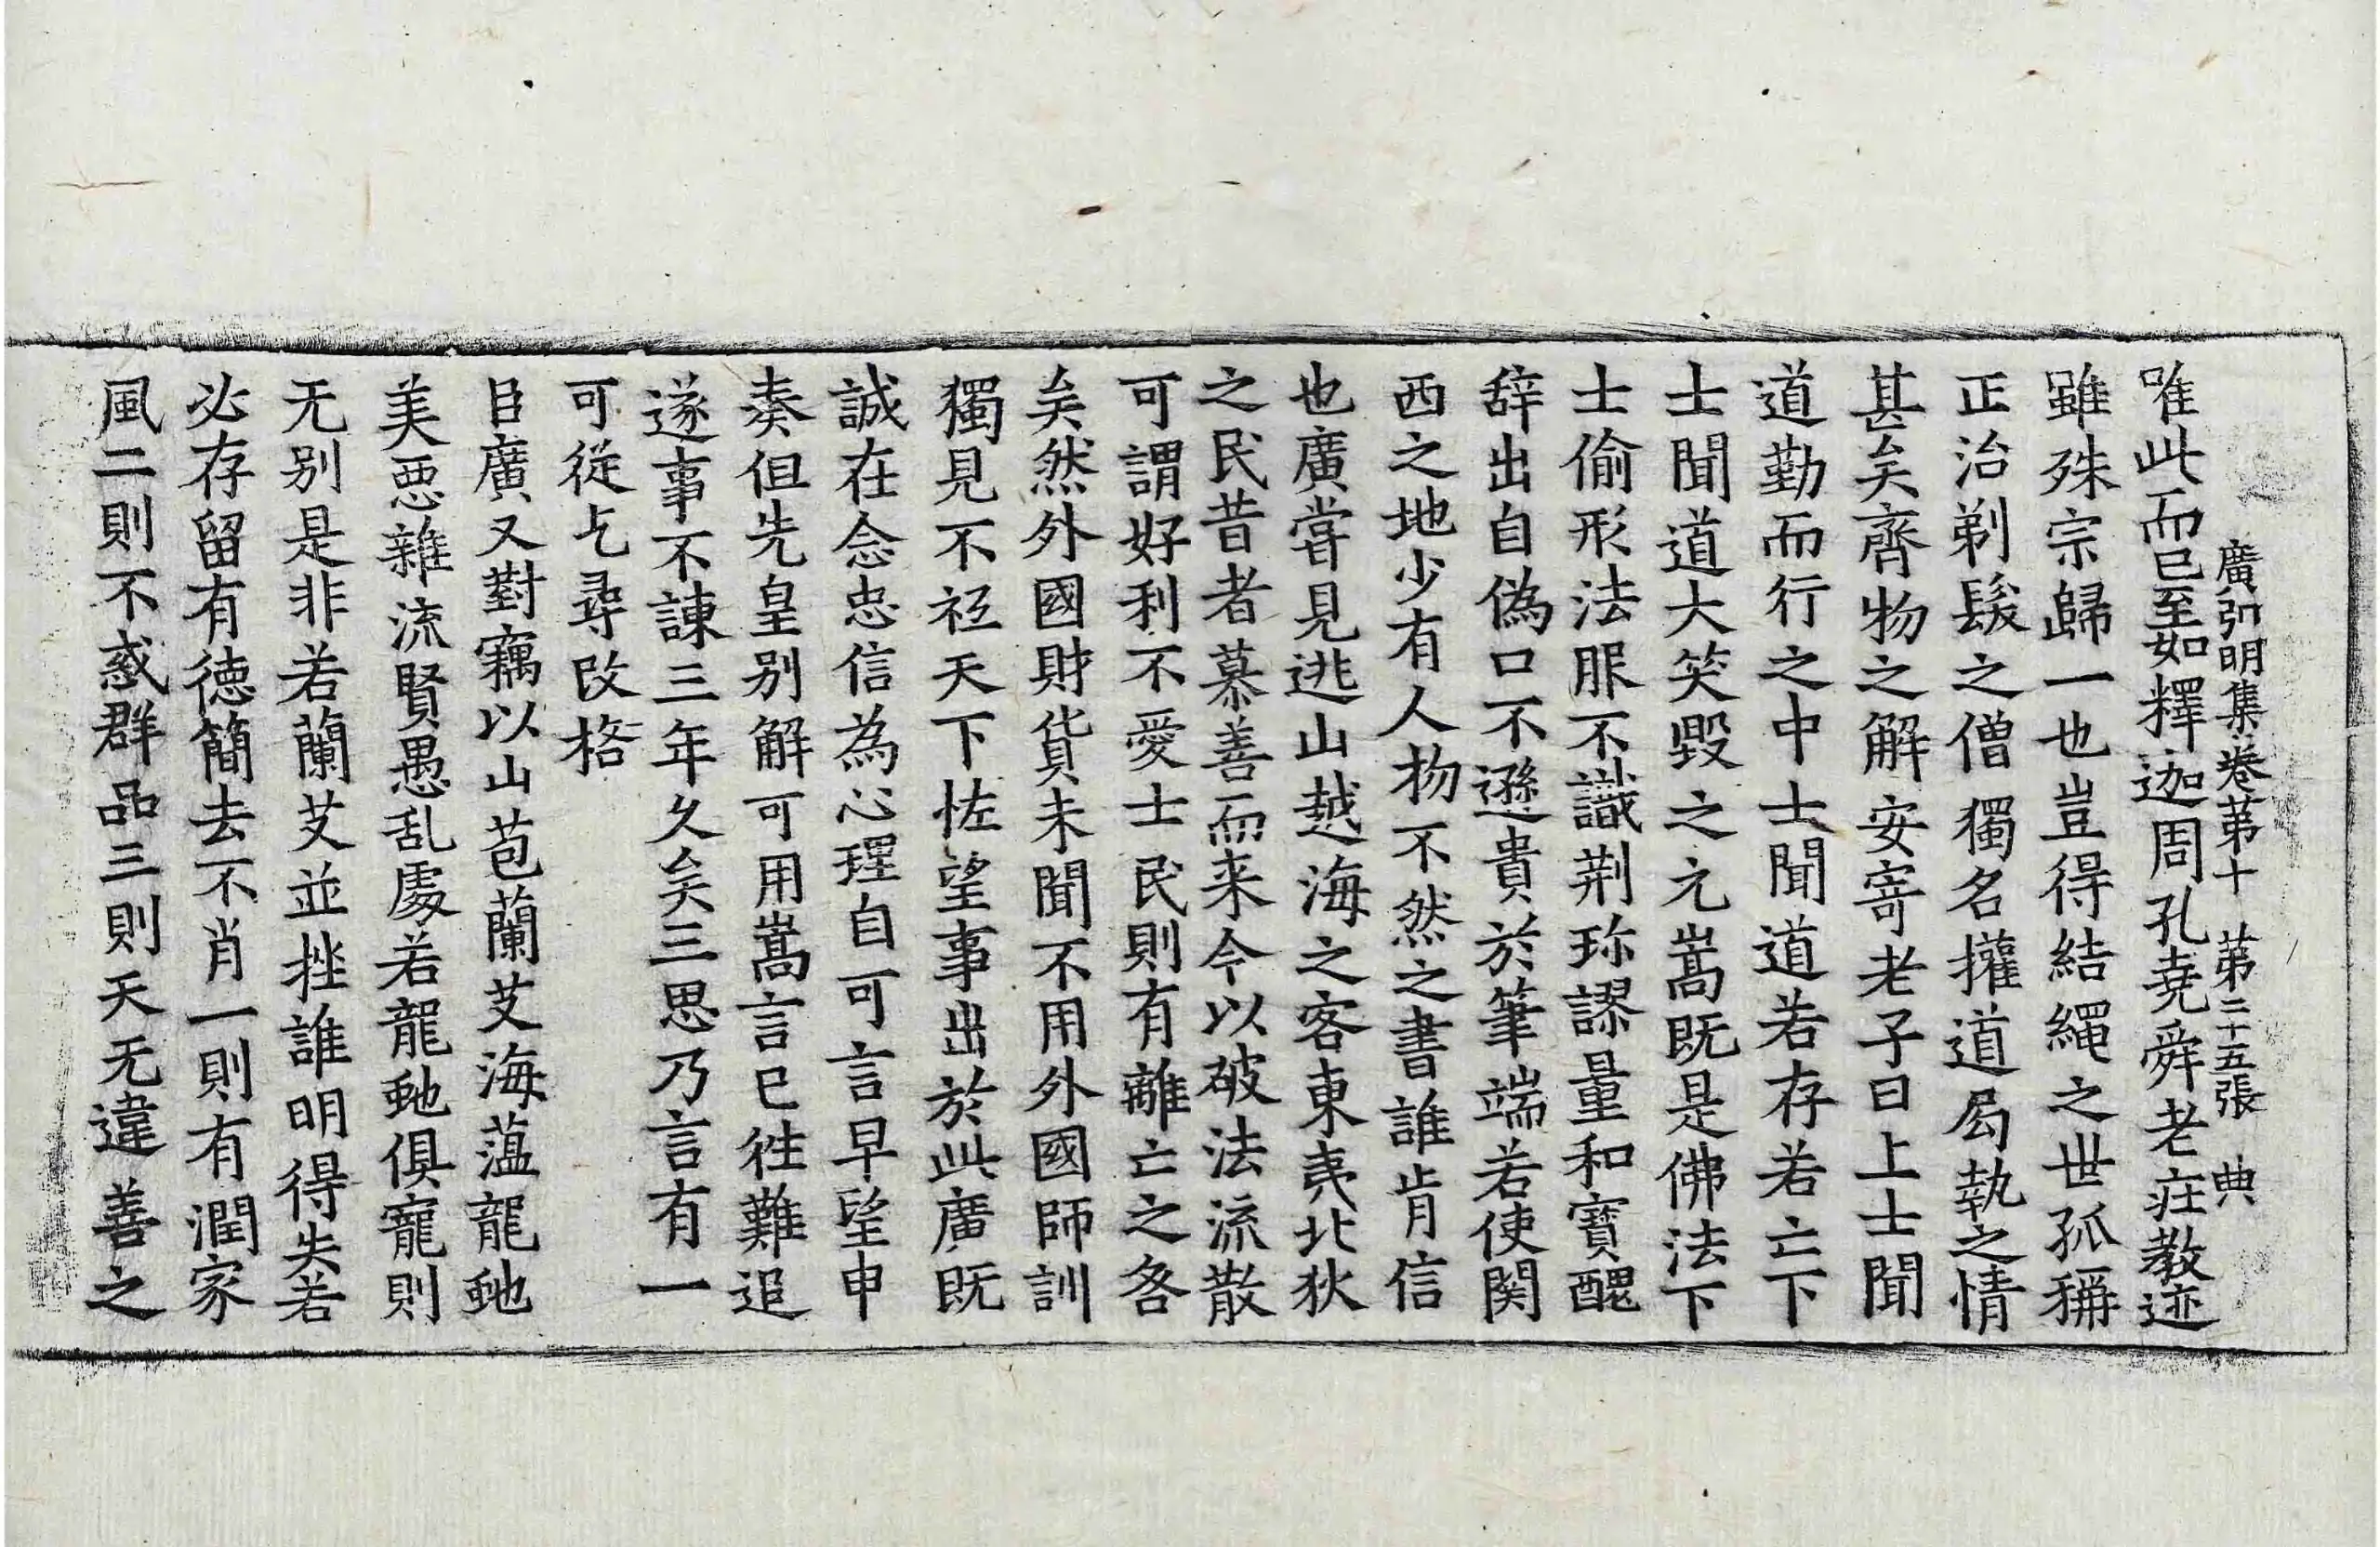 廣弘明集卷苐十　苐二十五張　典
唯此而已至如釋迦周孔堯舜老庄教迹
雖殊宗歸一也豈得結繩之世孤稱
正治剃髮之僧獨名權道局執之情
甚矣齊物之解安寄老子曰上士聞
道勤而行之中士聞道若存若亡下
士聞道大笑毀之元嵩既是佛法下
士偷形法服不識荆珎謬量和寶醜
辞出自偽口不遜貴於筆端若使関
西之地少有人物不然之書誰肯信
也廣嘗見逃山越海之客東夷北狄
之民昔者慕善而来今以破法流散
可謂好利不愛士民則有離亡之咎
矣然外國財貨未聞不用外國師訓
獨見不袛天下恠望事出於此廣既
誠在念忠信為心理自可言早望申
奏但先皇别解可用嵩言已徃難追
遂事不諫三年久矣三思乃言有一
可從乞尋改格
臣廣又對竊以山苞蘭艾海藴龍虵
美惡雜流賢愚乱處若龍虵俱寵則
无别是非若蘭艾並挫誰明得失若
必存留有徳簡去不肖一則有潤家
風二則不惑群品三則天无違善之